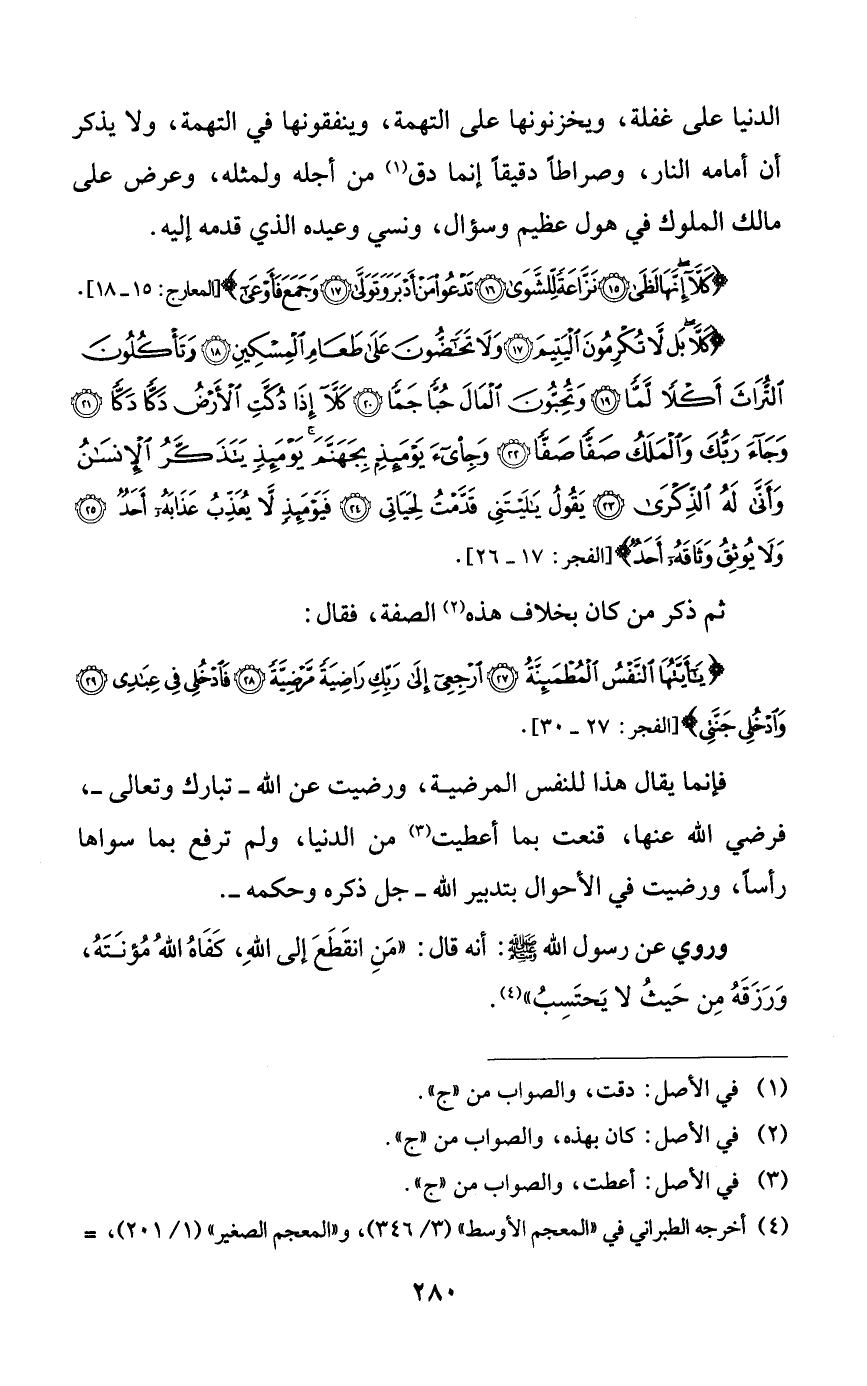 الدنيا على غفلة، ويخزنونها على التهمة، وينفقونها في التهمة، ولا يذكر
أن أمامه النار، وصراطاً دقيقاً إنما دق(١) من أجله ولمثله، وعرض على
مالك الملوك في هول عظيم وسؤال، ونسي وعيده الذي قدمه إليه.
﴿كَلَّا إِنَّهَا لَظَىٰ ۝١٥ نَزَّاعَةً لِّلشَّوَىٰ ۝١٦ تَدْعُوا مَنْ أَدْبَرَ وَتَوَلَّىٰ ۝١٧ وَجَمَعَ فَأَوْعَىٰ﴾ [المعارج: ١٥ ـ ١٨].
﴿كَلَّا بَل لَّا تُكْرِمُونَ الْيَتِيمَ ۝١٧ وَلَا تَحَاضُّونَ عَلَىٰ طَعَامِ الْمِسْكِينِ ۝١٨ وَتَأْكُلُونَ
التُّرَاثَ أَكْلًا لَّمًّا ۝١٩ وَتُحِبُّونَ الْمَالَ حُبًّا جَمًّا ۝٢٠ كَلَّا إِذَا دُكَّتِ الْأَرْضُ دَكًّا دَكًّا ۝٢١
وَجَاءَ رَبُّكَ وَالْمَلَكُ صَفًّا صَفًّا ۝٢٢ وَجِايءَ يَوْمَئِذٍ بِجَهَنَّمَ يَوْمَئِذٍ يَتَذَكَّرُ الْإِنسَانُ
وَأَنَّىٰ لَهُ الذِّكْرَىٰ ۝٢٣ يَقُولُ يَالَيْتَنِي قَدَّمْتُ لِحَيَاتِي ۝٢٤ فَيَوْمَئِذٍ لَّا يُعَذِّبُ عَذَابَهُ أَحَدٌ ۝٢٥
وَلَا يُوثِقُ وَثَاقَهُ أَحَدٌ﴾ [الفجر: ١٧ ـ ٢٦].
ثم ذكر من كان بخلاف هذه(٢) الصفة، فقال:
﴿يَاأَيَّتُهَا النَّفْسُ الْمُطْمَئِنَّةُ ۝٢٧ ارْجِعِي إِلَىٰ رَبِّكِ رَاضِيَةً مَّرْضِيَّةً ۝٢٨ فَادْخُلِي فِي عِبَادِي ۝٢٩
وَادْخُلِي جَنَّتِي﴾ [الفجر: ٢٧ ـ ٣٠].
فإنما يقال هذا للنفس المرضية، ورضيت عن الله ـ تبارك وتعالى ـ،
فرضي الله عنها، قنعت بما أعطيت(٣) من الدنيا، ولم ترفع بما سواها
رأساً، ورضيت في الأحوال بتدبير الله ـ جل ذكره وحكمه ـ.
وروي عن رسول الله ﷺ: أنه قال: «مَنِ انقَطَعَ إلى اللهِ، كَفَاهُ اللهُ مُؤنَتَهُ،
وَرَزَقَهُ مِن حَيثُ لا يَحتَسِبُ»(٤).
(١) في الأصل: دقت، والصواب من «ج».
(٢) في الأصل: كان بهذه، والصواب من «ج».
(٣) في الأصل: أعطت، والصواب من «ج».
(٤) أخرجه الطبراني في «المعجم الأوسط» (٣/ ٣٤٦)، و«المعجم الصغير» (١/ ٢٠١)، =
٢٨٠